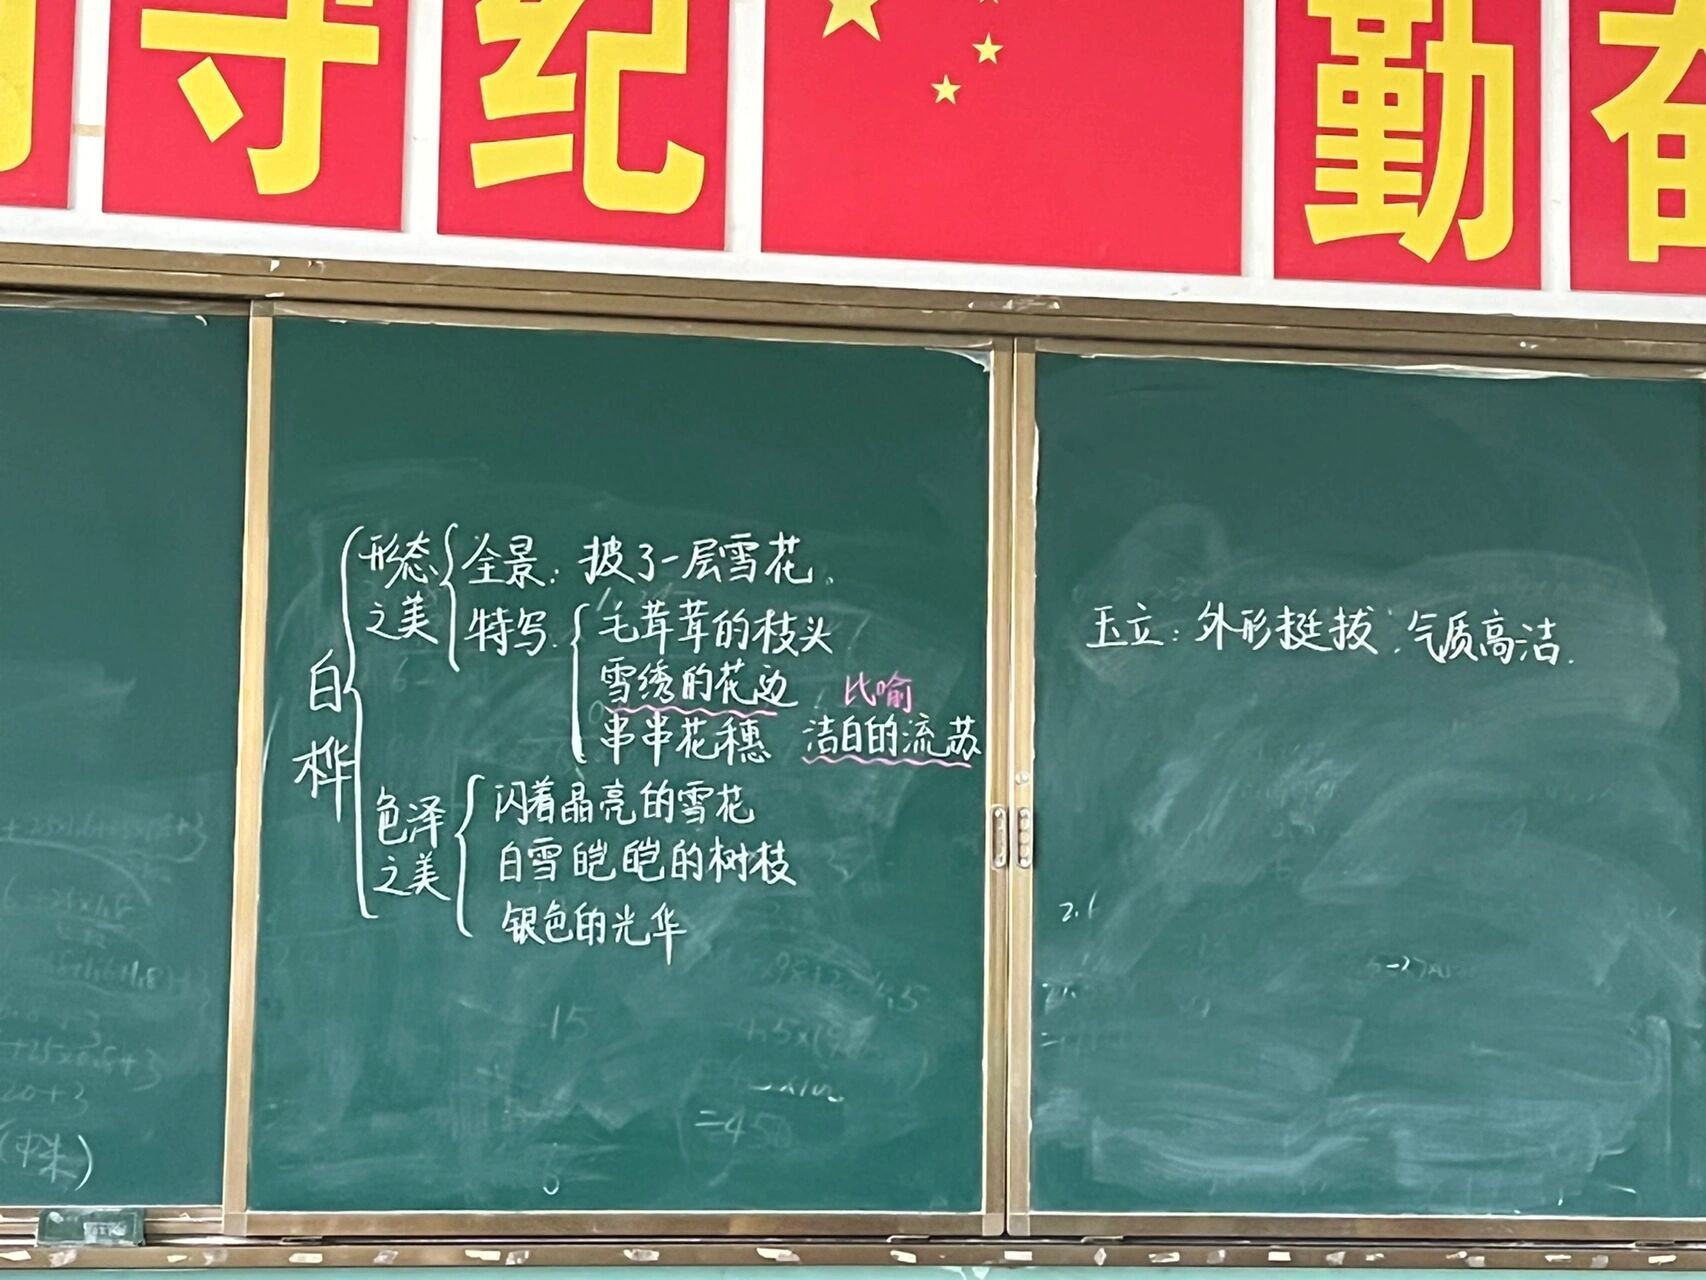 守纪 勤奋
白桦
形态之美
全景：披了一层雪花。
特写：
毛茸茸的枝头
雪绣的花边 比喻
串串花穗 洁白的流苏
色泽之美
闪着晶亮的雪花
白雪皑皑的树枝
银色的光华
玉立：外形挺拔；气质高洁.
15
=450
2.1
+25x0.8+3
20+3
(米)